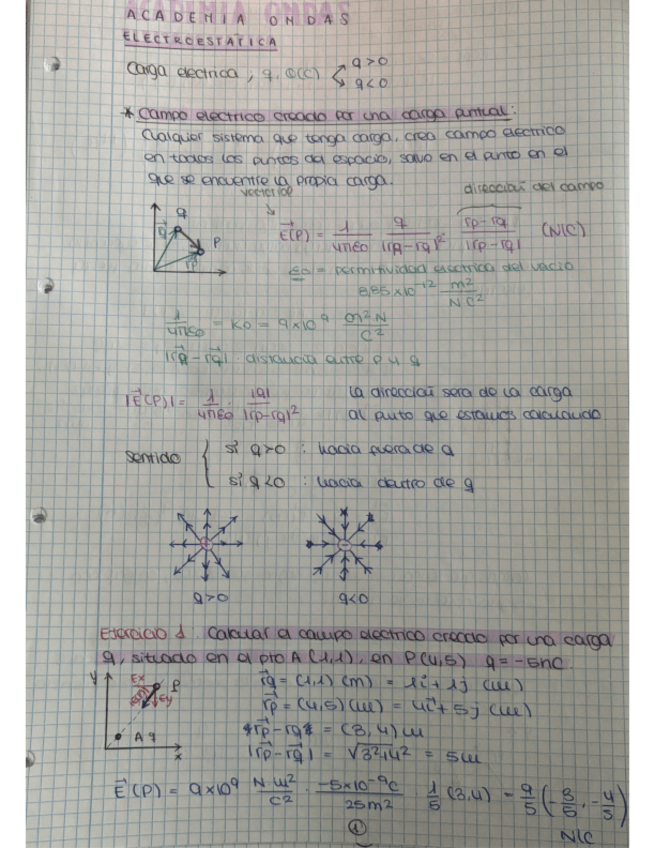 ACADEMIA ONDAS
ELECTROESTATICA
Carga electrica, q, Q(C) q>0
q<0
* Campo electrico creado por una carga puntual:
Cualquier sistema que tenga carga, crea campo electrico
en todos los puntos del espacio, salvo en el punto en el
que se encuentre la propia carga.
vectorial dirección del campo
q
P
E⃗(P) = 1/4πε0 q/|rp-rq|² rp-rq/|rp-rq| (N/C)
ε0 = permitividad electrica del vacio
8,85x10⁻¹² m²/NC²
1/4πε0 = K0 = 9x10⁹ m²N/C²
|rp-rq| distancia entre P y q
|E⃗(P)| = 1/4πε0 · |q|/|rp-rq|² La dirección sera de la carga
al punto que estamos calculando
Sentido si q>0 : hacia fuera de q
si q<0 : hacia dentro de q
q>0 q<0
Ejercicio 1. Calcular el campo electrico creado por una carga
q, situado en el pto A(1,1), en P(4,5) q=-5nC.
y Ex P Ey A q x
rq = (1,1) (m) = 1i+1j (m)
rp = (4,5) (m) = 4i+5j (m)
rp-rq = (3,4) m
|rp-rq| = √3²+4² = 5m
E⃗(P) = 9x10⁹ N·m²/C² · -5x10⁻⁹C/25m² · 1/5 (3,4) = 9/5 (-3/5, -4/5)
N/C
1